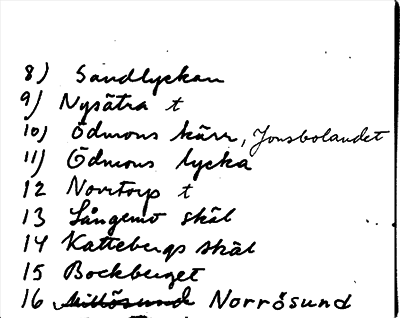 8) Sandlyckan
9) Nysätra t
10) Ödmons kärr, Jonsbolandet
11) Ödmons lycka
12 Norrtorp t
13 Långemo skäl
14 Kattebergs skäl
15 Bockberget
16 Norrösund